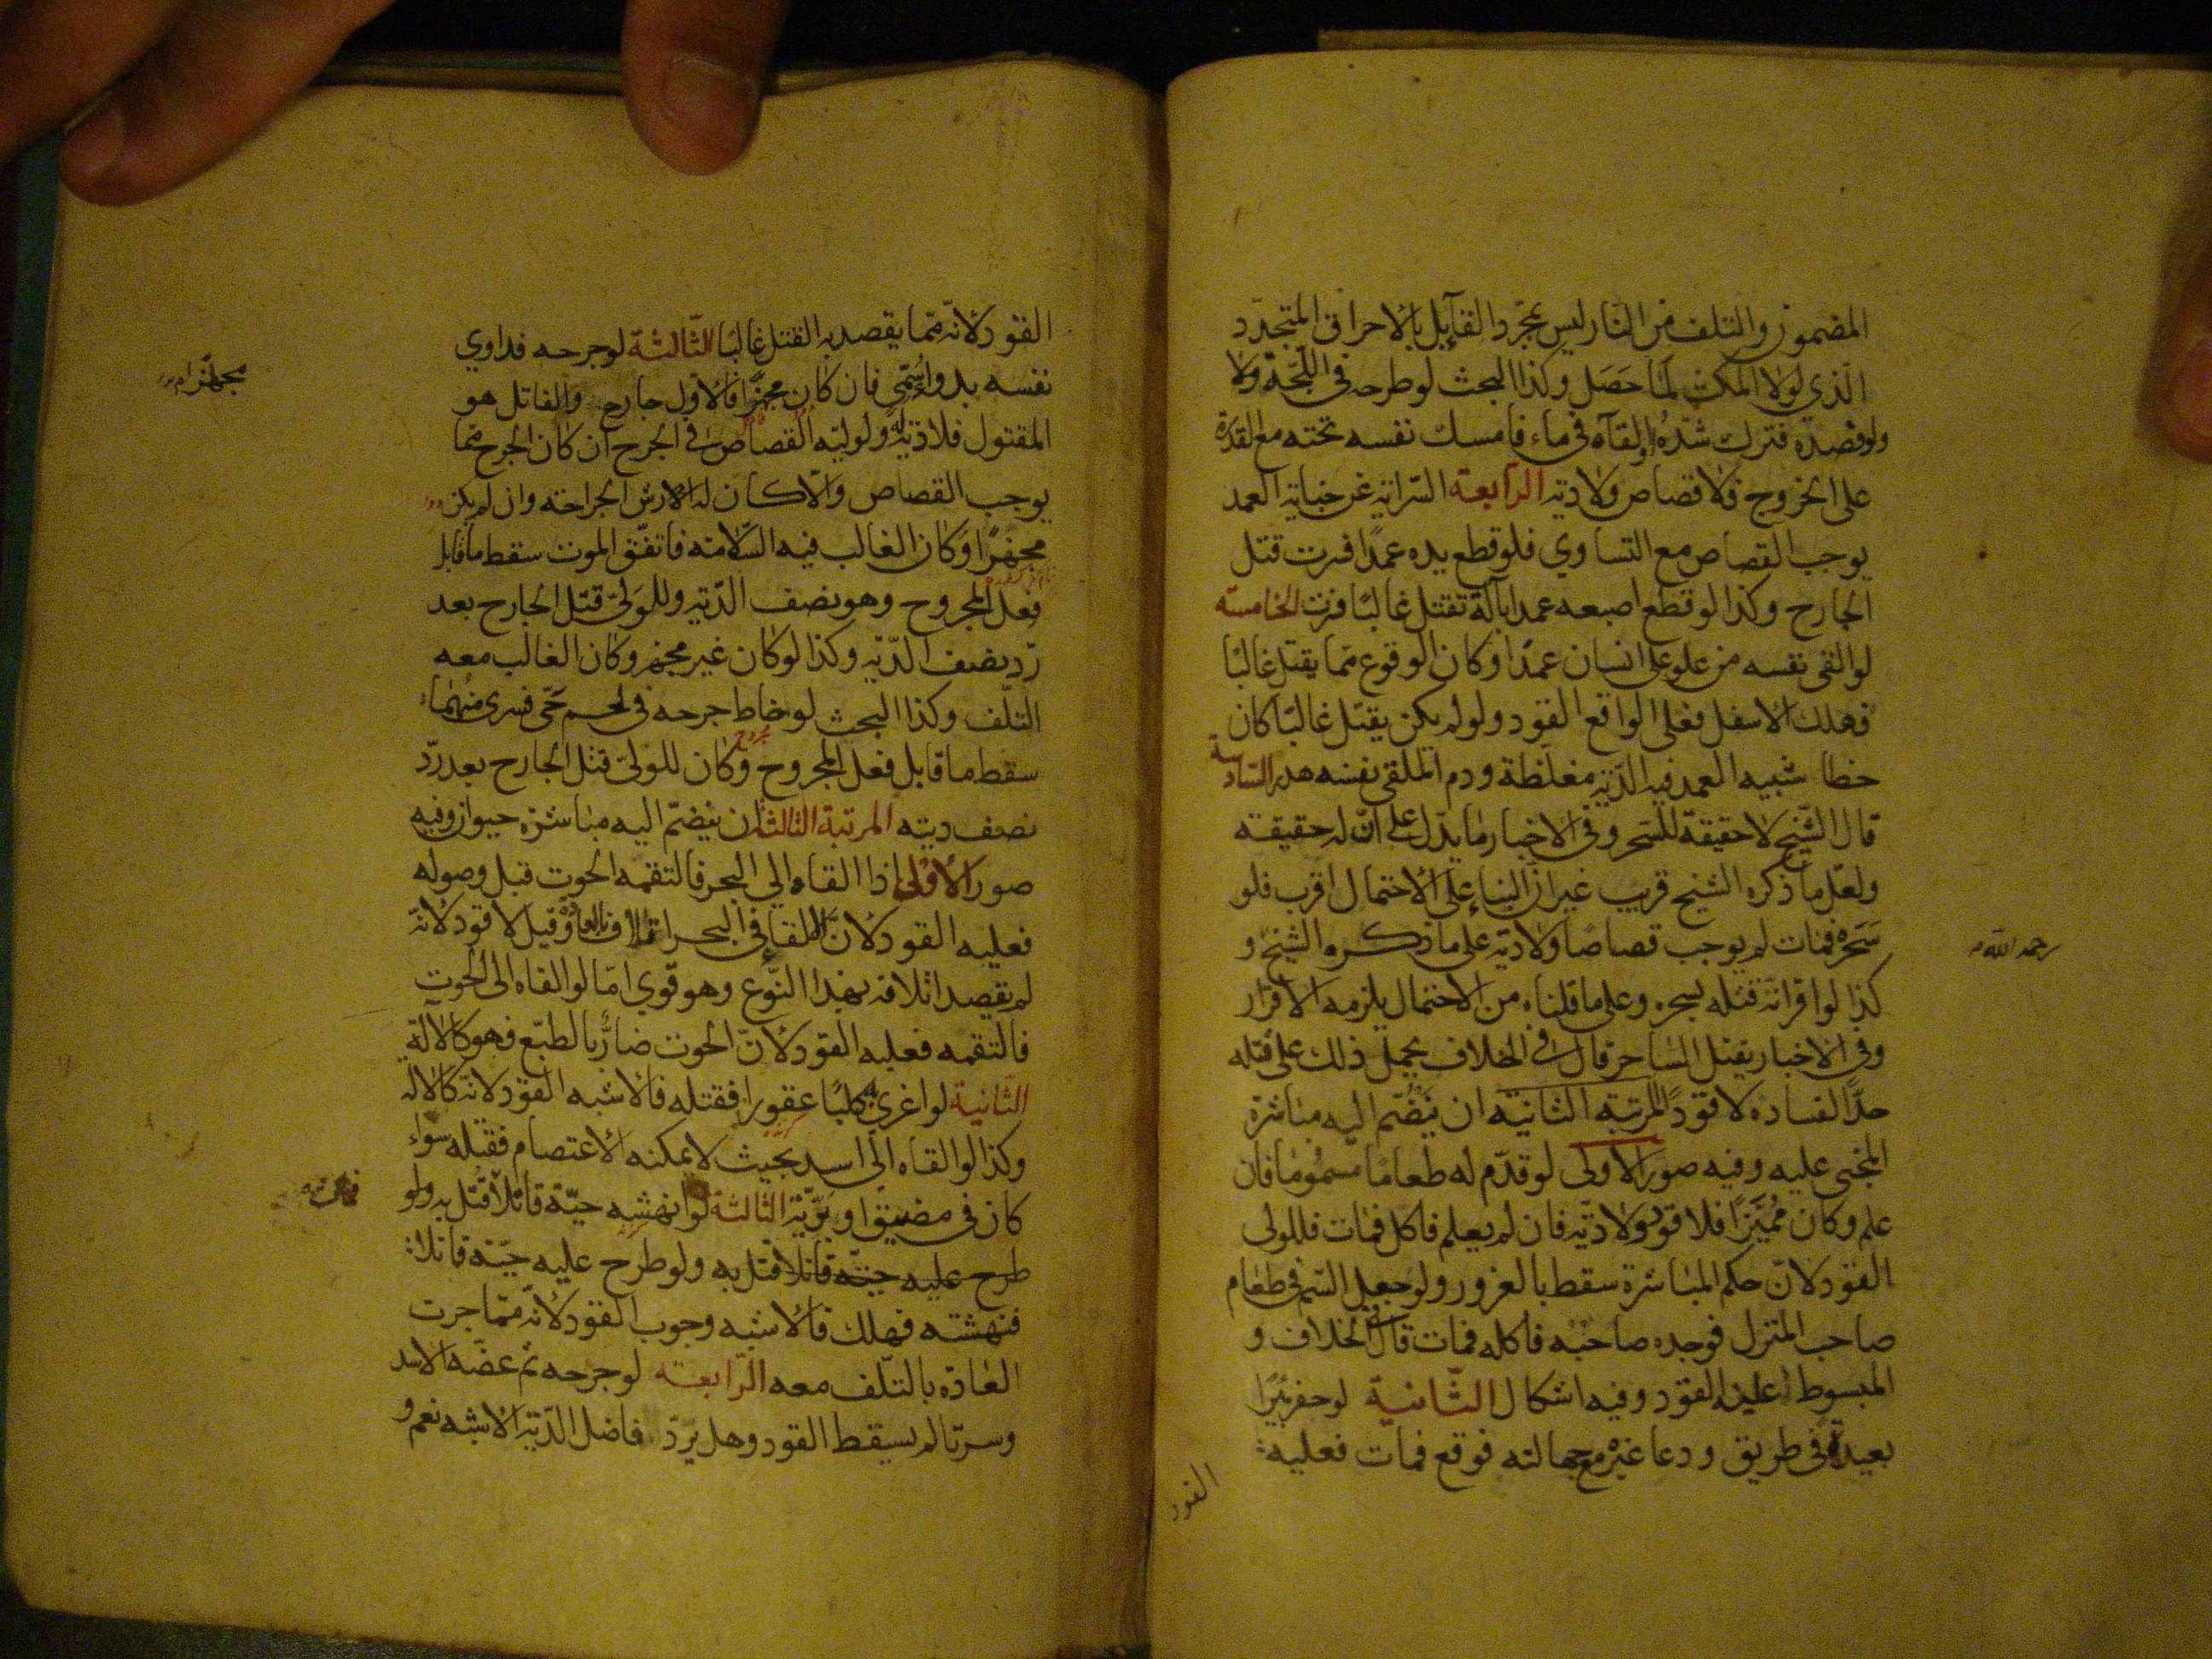 المضمون والتلف من النار ليس بمجرد القآئل بالاحراق المتجدد
الذي لولا المكث لما حصل وكذا البحث لو طرحه في اللجة ولا
ولو فصده فترك شده او القآه في ماء فامسك نفسه تحته مع القدرة
على الخروج فلا قصاص ولا دية الرابعة السراية عن جناية العمد
يوجب القصاص مع التساوي فلو قطع يده عمدا فسرت قتل
الجارح وكذا لو قطع اصبعه عمدا بآلة تقتل غالبا فسرت الخامسة
لو القى نفسه من علو على انسان عمدا وكان الوقوع مما يقتل غالبا
فهلك الاسفل فعلى الواقع القود ولو لم يكن يقتل غالبا كان
خطا شبيه العمد فيه الدية مغلظة ودم الملقي نفسه هدر السادسة
قال الشيخ لا حقيقة للسحر وفي الاخبار ما يدل على ان له حقيقة
ولعل ما ذكره الشيخ قريب غير ان البناء على الاحتمال اقرب فلو
سحره فمات لم يوجب قصاصا ولا دية على ما ذكره الشيخ و
كذا لو اقر انه قتله بسحره وعلى ما قلناه من الاحتمال يلزمه الاقرار
وفي الاخبار يقتل الساحر قال في الخلاف يحمل ذلك على قتله
حدا لفساده لا قودا المرتبة الثانية ان ينضم اليه مباشرة
المجني عليه وفيه صور الاولى لو قدم له طعاما مسموما فان
علم وكان مميزا فلا قود ولا دية فان لم يعلم فاكل فمات فللولي
القود لان حكم المباشرة سقط بالغرور ولو جعل السم في طعام
صاحب المنزل فوجده صاحبه فاكله فمات قال في الخلاف و
المبسوط عليه القود وفيه اشكال الثانية لو حفر بئرا
بعيدة في طريق ودعا غيره مع جهالته فوقع فمات فعليه
القود
رحمه الله
القود لانه مما يقصد به القتل غالبا الثالثة لو جرحه فداوي
نفسه بدواء سمي فان كان مجهزا فالاول جارح والقاتل هو
المقتول فلا دية له ولوليه القصاص في الجرح ان كان الجرح مما
يوجب القصاص والا كان له الارش الجراحته وان لم يكن
مجهزا وكان الغالب فيه السلامة فاتفق الموت سقط ما قابل
فعل المجروح وهو نصف الدية وللولي قتل الجارح بعد
رد نصف الدية وكذا لو كان غير مجهز وكان الغالب معه
التلف وكذا البحث لو خاط جرحه في لحم حي فسرى منهما
سقط ما قابل فعل المجروح وكان للولي قتل الجارح بعد رد
نصف ديته المرتبة الثالثة ان ينضم اليه مباشرة حيوان وفيه
صور الاولى اذا القاه الى البحر فالتقمه الحوت قبل وصوله
فعليه القود لان الالقا في البحر اتلاف بالعادة وقيل لا قود لانه
لم يقصد اتلافه بهذا النوع وهو قوي اما لو القاه الى الحوت
فالتقمه فعليه القود لان الحوت ضار بالطبع فهو كالآلة
الثانية لو اغرى به كلبا عقورا فقتله فالاشبه القود لانه كالالة
وكذا لو القاه الى اسد بحيث لا يمكنه الاعتصام فقتله سواء
كان في مضيق او برية الثالثة لو انهشه حية قاتلا قتل به ولو
طرح عليه حية قاتلا قتل به ولو طرح عليه حية قاتلا
فنهشته فهلك فالاشبه وجوب القود لانه مما جرت
العادة بالتلف معه الرابعة لو جرحه ثم عضه الاسد
وسرتا لم يسقط القود وهل يرد فاضل الدية الاشبه نعم و
مجهزا